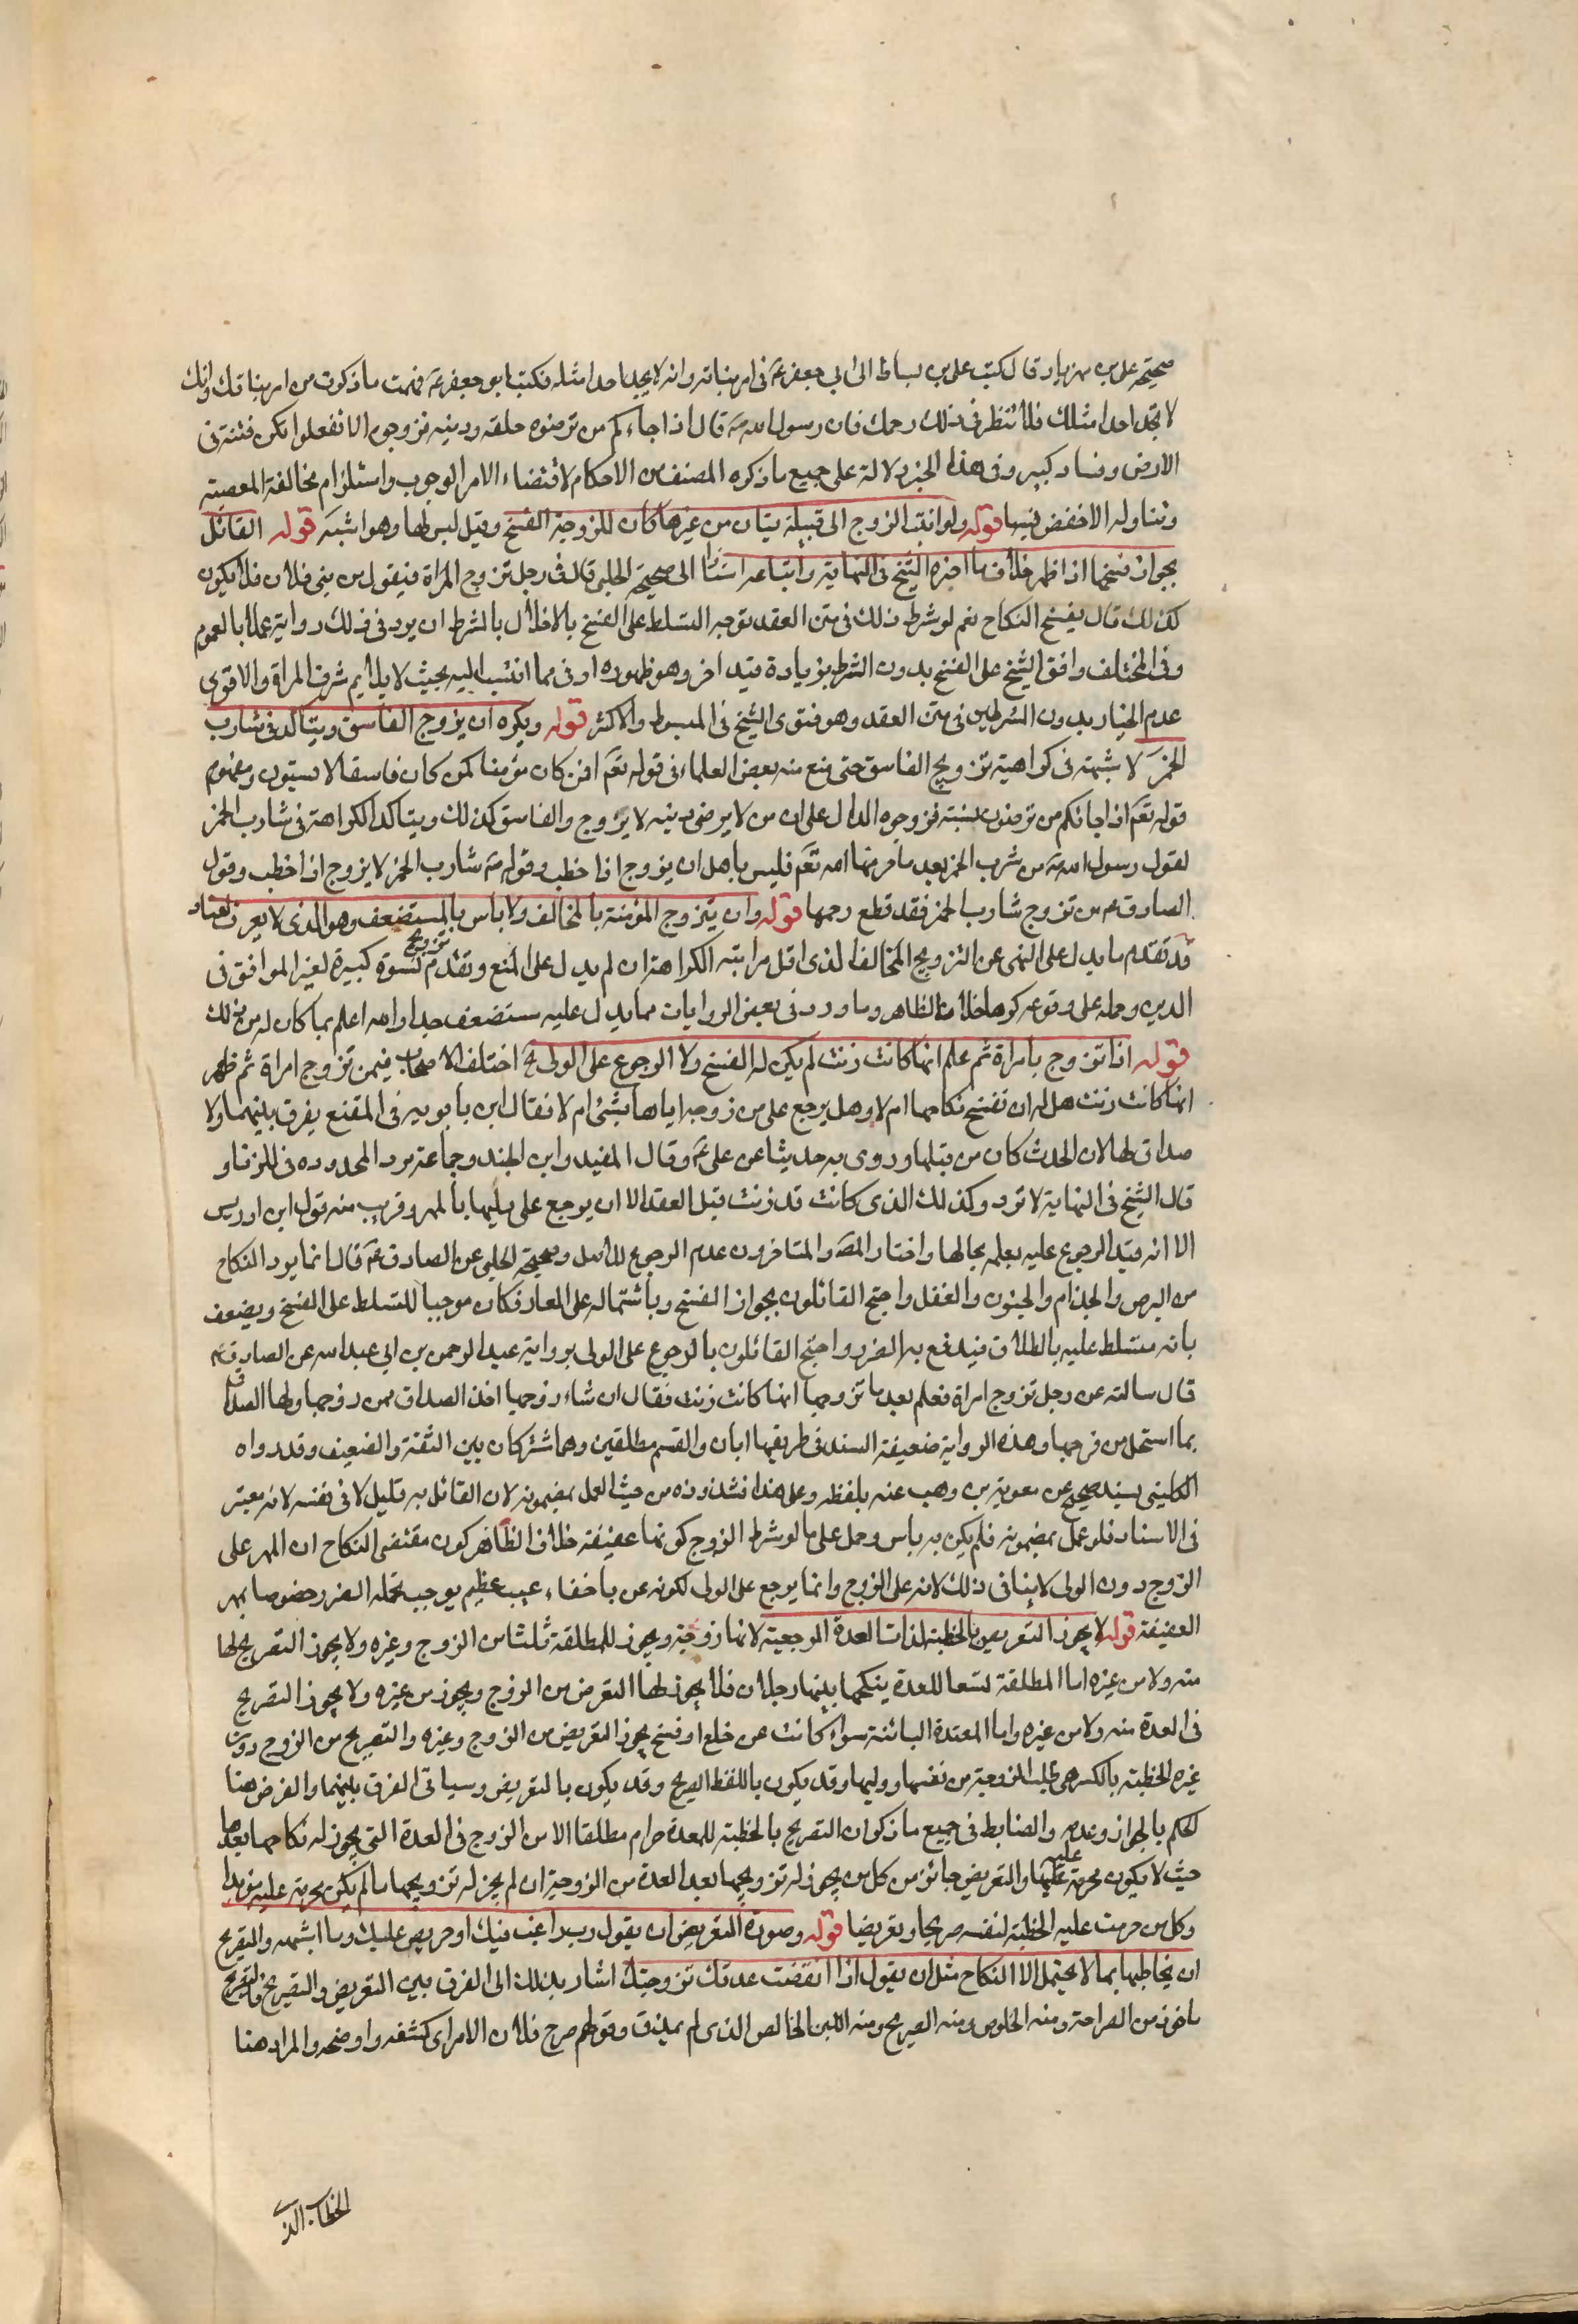 صحيحة علي بن مهزيار قال كتب علي بن اسباط الى ابي جعفر ع في امر بناته وانه لا يجد احدا مثله فكتب ابو جعفر ع فهمت ما ذكرت من امر بناتك وانك
لا تجد احدا مثلك فلا تنظر في ذلك رحمك فان رسول الله ص قال اذا جاءكم من ترضون خلقه ودينه فزوجوه الا تفعلوا تكن فتنة في
الارض وفساد كبير وفي هذا الخبر دلالة على جميع ما ذكره المصنف من الاحكام لاقتضاء الامر الوجوب واستلزام مخالفة المعصية
وتناوله الاخفض فيها قوله ولو انتسب الزوج الى قبيلة فبان من غيرها كان للزوجة الفسخ وقيل ليس لها وهو اشبه قوله القائل
بجواز فسخها اذا ظهر خلاف ما اخبره الشيخ في النهاية واتباعه استنادا الى صحيحة الحلبي قال في رجل تزوج المراة فيقول من بني فلان فلا يكون
كذلك قال يفسخ النكاح نعم لو شرط ذلك في متن العقد توجه التسلط على الفسخ بالاخلال بالشرط ان يرد في ذلك رواية عملا بالعموم
وفي المختلف وافق الشيخ على الفسخ بدون الشرط بزيادة قيد اخر وهو ظهوره ادنى مما انتسب اليه بحيث لا يلائم شرف المراة والاقوى
عدم الخيار بدون الشرطين في متن العقد وهو فتوى الشيخ في المبسوط والاكثر قوله ويكره ان يزوج الفاسق ويتاكد في شارب
الخمر لا شبهة في كراهية تزويج الفاسق حتى منع منه بعض العلماء في قوله تعم افمن كان مؤمنا كمن كان فاسقا لا يستوون ومفهوم
قوله تعم اذا جائكم من ترضون بنسبته فزوجوه الدال على ان من لا يرضى دينه لا يزوج والفاسق كذلك ويتاكد الكراهة في شارب الخمر
لقول رسول الله ص من شرب الخمر بعد ما حرمها الله تعم فليس باهل ان يزوج اذا خطب وقوله ص شارب الخمر لا يزوج اذا خطب وقول
الصادق ع من تزوج شارب الخمر فقد قطع رحمها قوله وان يتزوج المؤمنة بالمخالف ولا باس بالمستضعف وهو الذي لا يعرف بعناد
قد تقدم ما يدل على النهي عن التزويج المخالف الذي اقل مراتبه الكراهة ان لم يدل على المنع وتقدم تزويج نسوة كبيرة لغير الموافق في
الدين وحمله على وقوعه كرها خلاف الظاهر وما ورد في بعض الروايات مما يدل عليه مستضعف جدا والله اعلم بما كان له من ذلك
قوله اذا تزوج بامراة ثم علم انها كانت زنت لم يكن له الفسخ ولا الرجوع على الولي اختلف الاصحاب فيمن تزوج امراة ثم ظهر
انها كانت زنت هل له ان تفسخ نكاحها ام لا وهل يرجع على من زوجه اياها بشئ ام لا فقال ابن بابويه في المقنع يفرق بينهما ولا
صداق لها لان الحدث كان من قبلها وروى به حديثا عن علي ع وقال المفيد وابن الجنيد وجماعة ترد المحدودة في الزنا و
قال الشيخ في النهاية لا ترد وكذلك الذي كانت قد زنت قبل العقد الا ان يرجع على وليها بالمهر وقريب منه قول ابن ادريس
الا انه قيد الرجوع عليه بعلمه بحالها واختار المص والمتاخرون عدم الرجوع للاصل وصحيحة الحلبي عن الصادق ع قال انما يرد النكاح
من البرص والجذام والجنون والعفل واحتج القائلون بجواز الفسخ وباشتماله على العار فكان موجبا للتسلط على الفسخ ويضعف
بانه متسلط عليه بالطلاق فيدفع به الضرر واحتج القائلون بالرجوع على الولي برواية عبد الرحمن بن ابي عبد الله عن الصادق ع
قال سالته عن رجل تزوج امراة فعلم بعد ما تزوجها انها كانت زنت فقال ان شاء زوجها اخذ الصداق ممن زوجها ولها الصداق
بما استحل من فرجها وهذه الرواية ضعيفة السند في طريقها ابان والقسم مطلقين وهما مشتركان بين الثقة والضعيف وقد رواه
الكليني بسند صحيح عن معوية بن وهب عنه بلفظه وعلى هذا فشذوذه من حيث العمل بمضمونه لان القائل به قليل لا في نفسه لانه معتبر
في الاسناد فلو عمل بمضمونه فلم يكن به باس وحمل على ما لو شرط الزوج كونها عفيفة خلاف الظاهر كون مقتضى النكاح ان المهر على
الزوج دون الولي لا ينافى ذلك لانه على الزوج وانما يرجع على الولي لكونه عن باخفاء عيب عظيم يوجب تحمله الضرر خصوصا بمهر
العفيفة قوله لا يجوز التعريض بالخطبة لذات العدة الرجعية لانها زوجة ويجوز للمطلقة ثلثا من الزوج وغيره ولا يجوز التصريح لها
منه ولا من غيره اما المطلقة تسعا للعدة ينكحها بينها رجلان فلا يجوز لها التعرض من الزوج ويجوز من غيره ولا يجوز التصريح
في العدة منه ولا من غيره واما المعتدة البائنة سواء كانت عن خلع او فسخ يجوز التعريض من الزوج وغيره والتصريح من الزوج دون
غيره الخطبة بالكسر هي طلب الزوجة من نفسها ووليها وقد يكون باللفظ الصريح وقد يكون بالتعريض وسياتى الفرق بينهما والغرض هنا
الحكم بالجواز وعدمه والضابط في جميع ما ذكر ان التصريح بالخطبة للمعدة حرام مطلقا الا من الزوج في العدة التي يجوز له نكاحها بعدها
حيث لا يكون محرمة عليه عليها والتعريض جائز من كل من يجوز له تزويجها بعد العدة من الزوجية ان لم يجز له تزويجها ما لم يكن محرمة عليه مؤبدا
وكل من حرمت عليه الخطبة لنفسه صريحا وتعريضا قوله وصورة التعريض ان يقول رب راغب فيك او حريص عليك وما اشبهه والتصريح
ان يخاطبها بما لا يحتمل الا النكاح مثل ان يقول اذا انقضت عدتك تزوجتك اشار بذلك الى الفرق بين التعريض والتصريح فالتصريح
ماخوذ من الصراحة ومنه الخلوص ومنه الصريح ومنه اللبن الخالص الذي لم يمذق وقولهم صرح فلان الامر اى كشفه واوضحه والمراد هنا
الخطاب الذي